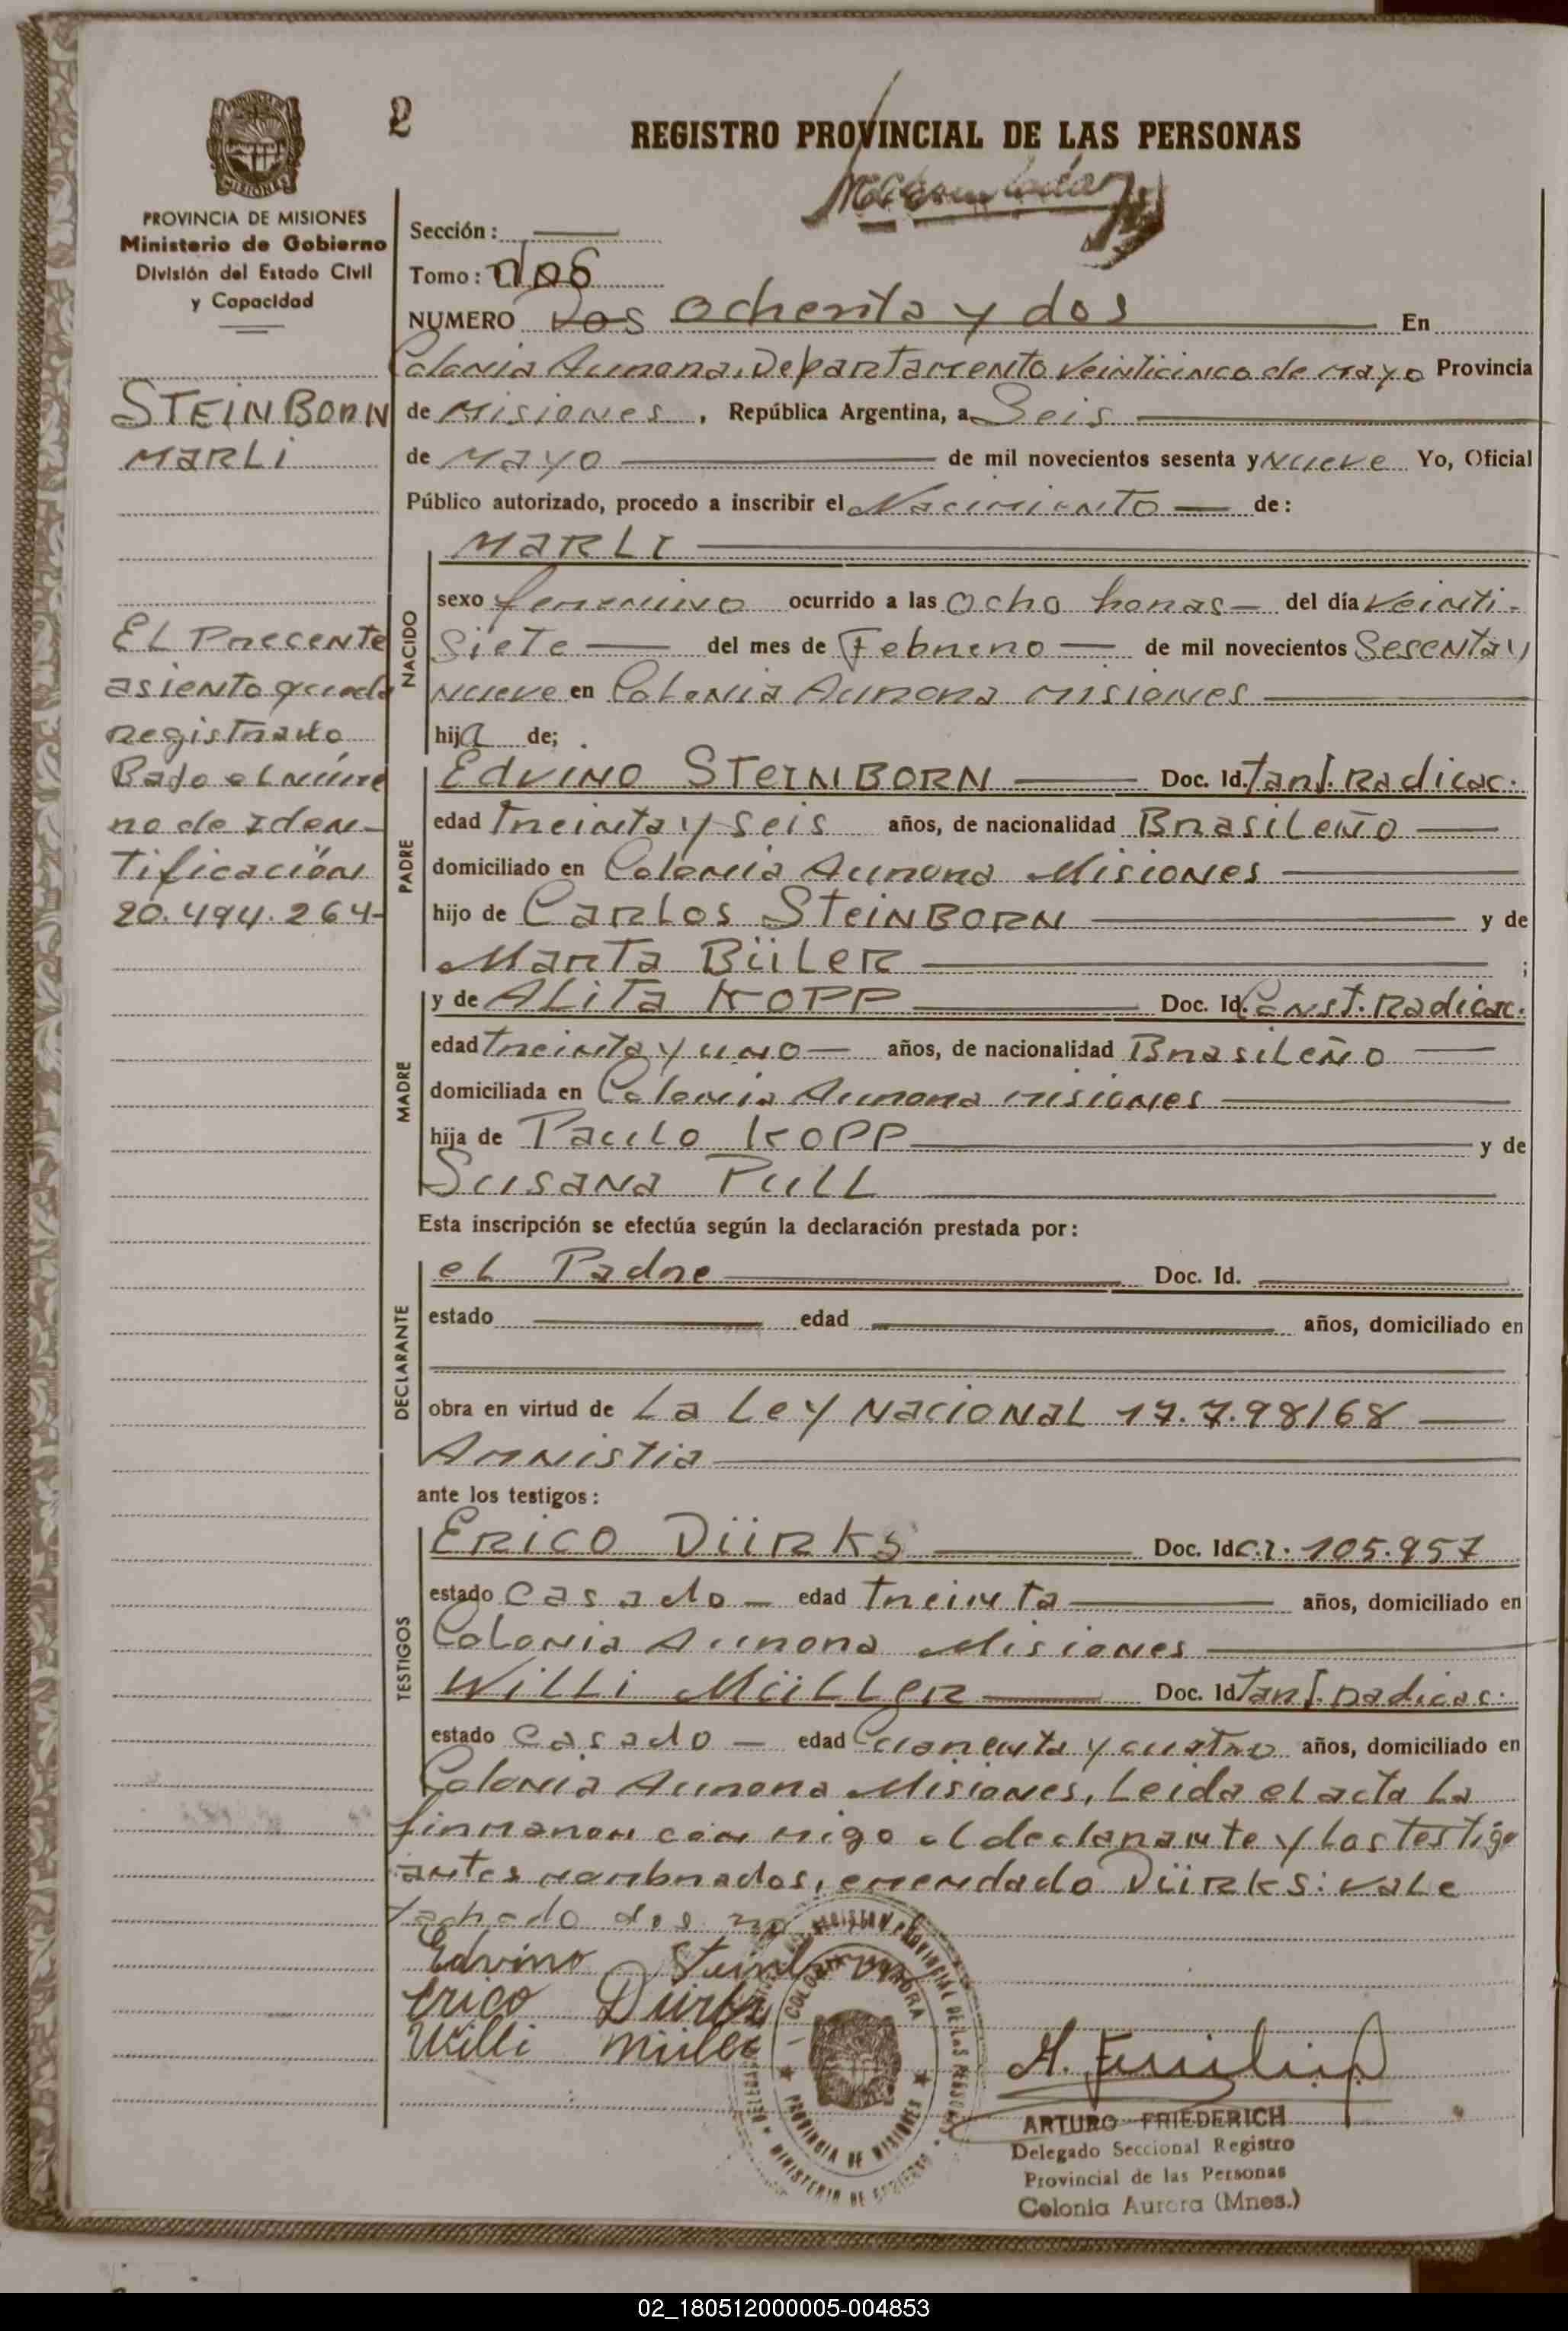 2
REGISTRO PROVINCIAL DE LAS PERSONAS
PROVINCIA DE MISIONES
Ministerio de Gobierno
División del Estado Civil
y Capacidad
Sección :
Tomo : dos
NUMERO Dos ochenta y dos En
Colonia Aurora, Departamento Veinticinco de mayo Provincia
de Misiones , República Argentina, a Seis
de Mayo de mil novecientos sesenta y Nueve Yo, Oficial
Público autorizado, procedo a inscribir el Nacimiento de :
STEINBORN
MARLi
El Presente
asiento queda
registrado
Bajo el núme
ro de Iden-
tificación
20.494.264-
NACIDO
MARLI
sexo femenino ocurrido a las ocho horas del día veinti-
siete del mes de Febrero de mil novecientos Sesenta y
nueve en Colonia Aurora Misiones
hija de;
PADRE
Edvino STEINBORN Doc. Id. Tarj. Radicac.
edad Treinta y seis años, de nacionalidad Brasileño
domiciliado en Colonia Aurora Misiones
hijo de Carlos STeiNBORN y de
Marta Büler ;
MADRE
y de ALiTa KOPP Doc. Id. Const. Radicac.
edad Treinta y uno años, de nacionalidad Brasileño
domiciliada en Colonia Aurora misiones
hija de Paulo KOPP y de
Susana PULL
Esta inscripción se efectúa según la declaración prestada por :
DECLARANTE
el Padre Doc. Id.
estado edad años, domiciliado en
obra en virtud de La Ley Nacional 17.7.98/68
Amnistia
ante los testigos :
TESTIGOS
Erico Dürks Doc. Id C.I. 105.957
estado casado edad Treinta años, domiciliado en
Colonia Aurora Misiones
Willi Müller Doc. Id Tarj. radicac.
estado casado edad Cuarenta y cuatro años, domiciliado en
Colonia Aurora Misiones, Leida el acta La
firmaron con migo el declarante y los testigo
antes nombrados, enmendado Dürks: vale
tachado dos no
Edvino Steinborn
Erico Dürks
Willi Müller
COLONIA AURORA
PROVINCIA DE MISIONES
ARTURO FRIEDERICH
Delegado Seccional Registro
Provincial de las Personas
Colonia Aurora (Mnes.)
02_180512000005-004853